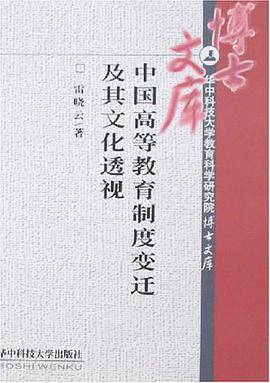 博士
文库
华中科技大学教育科学研究院
博士文库
中国高等教育制度变迁
及其文化透视
□雷晓云/著
华中科技大学出版社
BOSHI WENKU